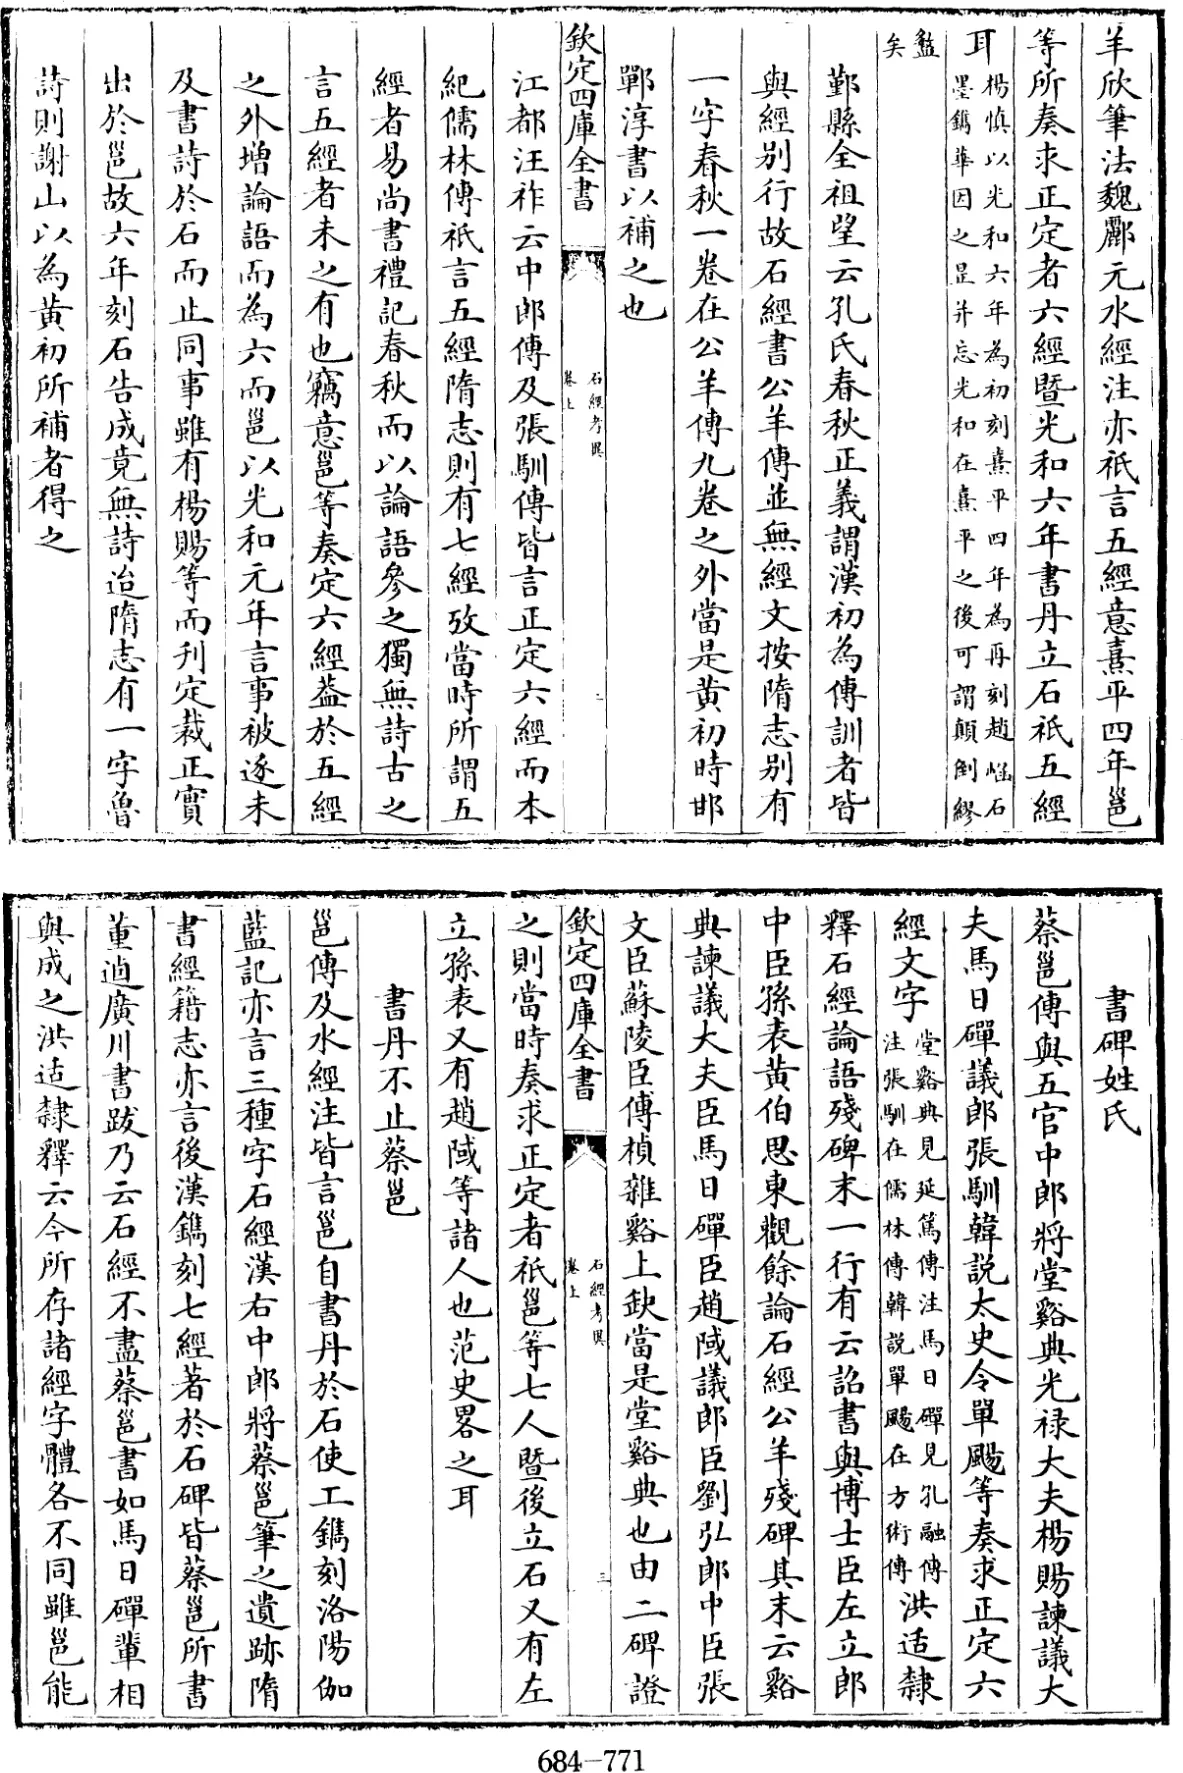 羊欣筆法魏酈元水經注亦祇言五經意熹平四年邕
等所奏求正定者六經暨光和六年書丹立石祇五經
耳楊慎以光和六年為初刻熹平四年為再刻趙崡石
墨鐫華因之昰并忘光和在熹平之後可謂顛倒繆
盭
矣
鄞縣全祖望云孔氏春秋正義謂漢初為傳訓者皆
與經别行故石經書公羊傳並無經文按隋志别有
一字春秋一卷在公羊傳九卷之外當是黄初時邯
鄲淳書以補之也
欽定四庫全書
石經考異
卷上
二
江都汪祚云中郎傳及張馴傳皆言正定六經而本
紀儒林傳祇言五經隋志則有七經攷當時所謂五
經者易尚書禮記春秋而以論語參之獨無詩古之
言五經者未之有也竊意邕等奏定六經葢於五經
之外增論語而為六而邕以光和元年言事被逐未
及書詩於石而止同事雖有楊賜等而刋定裁正實
出於邕故六年刻石告成竟無詩迨隋志有一字魯
詩則謝山以為黄初所補者得之
書碑姓氏
蔡邕傳與五官中郎將堂谿典光禄大夫楊賜諫議大
夫馬日磾議郎張馴韓説太史令單颺等奏求正定六
經文字堂谿典見延篤傳注馬日磾見孔融傳
注張馴在儒林傳韓説單颺在方術傳洪适隸
釋石經論語殘碑末一行有云詔書與博士臣左立郎
中臣孫表黄伯思東觀餘論石經公羊殘碑其末云谿
典諫議大夫臣馬日磾臣趙陚議郎臣劉弘郎中臣張
文臣蘇陵臣傳楨雜谿上缺當是堂谿典也由二碑證
欽定四庫全書
石經考異
卷上
三
之則當時奏求正定者祇邕等七人暨後立石又有左
立孫表又有趙陚等諸人也范史畧之耳
書丹不止蔡邕
邕傳及水經注皆言邕自書丹於石使工鐫刻洛陽伽
藍記亦言三種字石經漢右中郎將蔡邕筆之遺跡隋
書經籍志亦言後漢鐫刻七經著於石碑皆蔡邕所書
董逌廣川書跋乃云石經不盡蔡邕書如馬日磾輩相
與成之洪适隸釋云今所存諸經字體各不同雖邕能
684-771